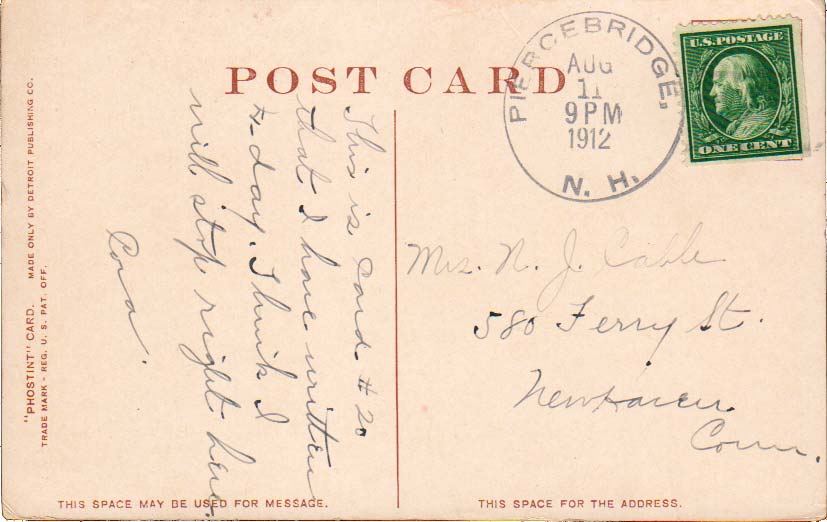 POST CARD
PIERCEBRIDGE,
AUG
11
9 PM
1912
N. H.
U.S. POSTAGE
ONE CENT
This is Card #20
that I have written
to-day. I think I
will stop right here.
Cora.
Mrs. N. J. Cable
580 Ferry St.
New Haven
Conn.
"PHOSTINT" CARD. MADE ONLY BY DETROIT PUBLISHING CO.
TRADE MARK - REG. U. S. PAT. OFF.
THIS SPACE MAY BE USED FOR MESSAGE.
THIS SPACE FOR THE ADDRESS.